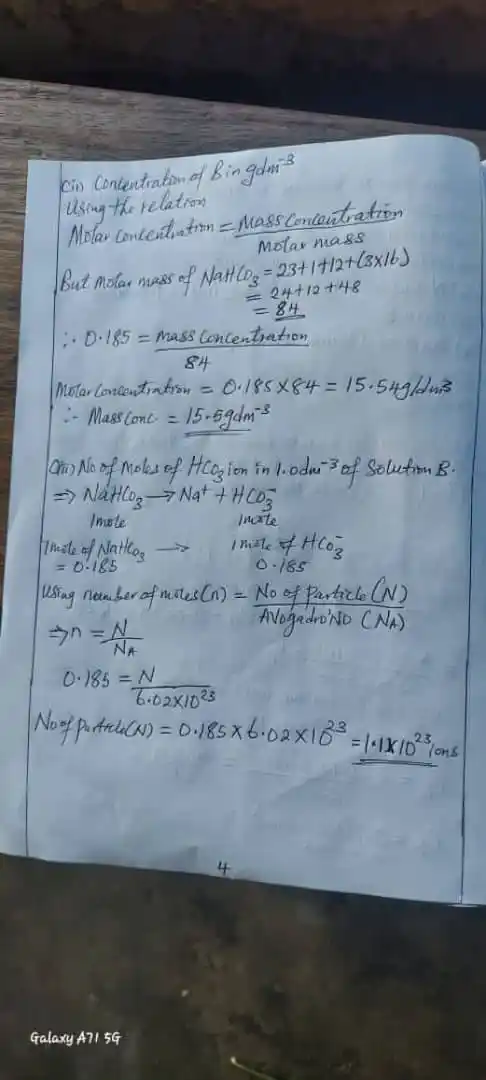 (ii) Concentration of B in gdm⁻³
Using the relation
Molar concentration = Mass Concentration / Molar mass
But Molar mass of NaHCO₃ = 23+1+12+(3x16)
= 24+12+48
= 84
∴ 0.185 = Mass Concentration / 84
Molar Concentration = 0.185 x 84 = 15.54g/dm³
∴ Mass Conc. = 15.5gdm⁻³
(iii) No of Moles of HCO₃ ion in 1.0dm⁻³ of Solution B.
⇒ NaHCO₃ → Na⁺ + HCO₃⁻
1mole 1mole
1mole of NaHCO₃ → 1 mole of HCO₃⁻
= 0.185 0.185
Using number of moles (n) = No of Particle (N) / Avogadro' NO (NA)
⇒ n = N / NA
0.185 = N / 6.02x10²³
No of particle (N) = 0.185 x 6.02 x 10²³ = 1.1x10²³ ions
4
Galaxy A71 5G